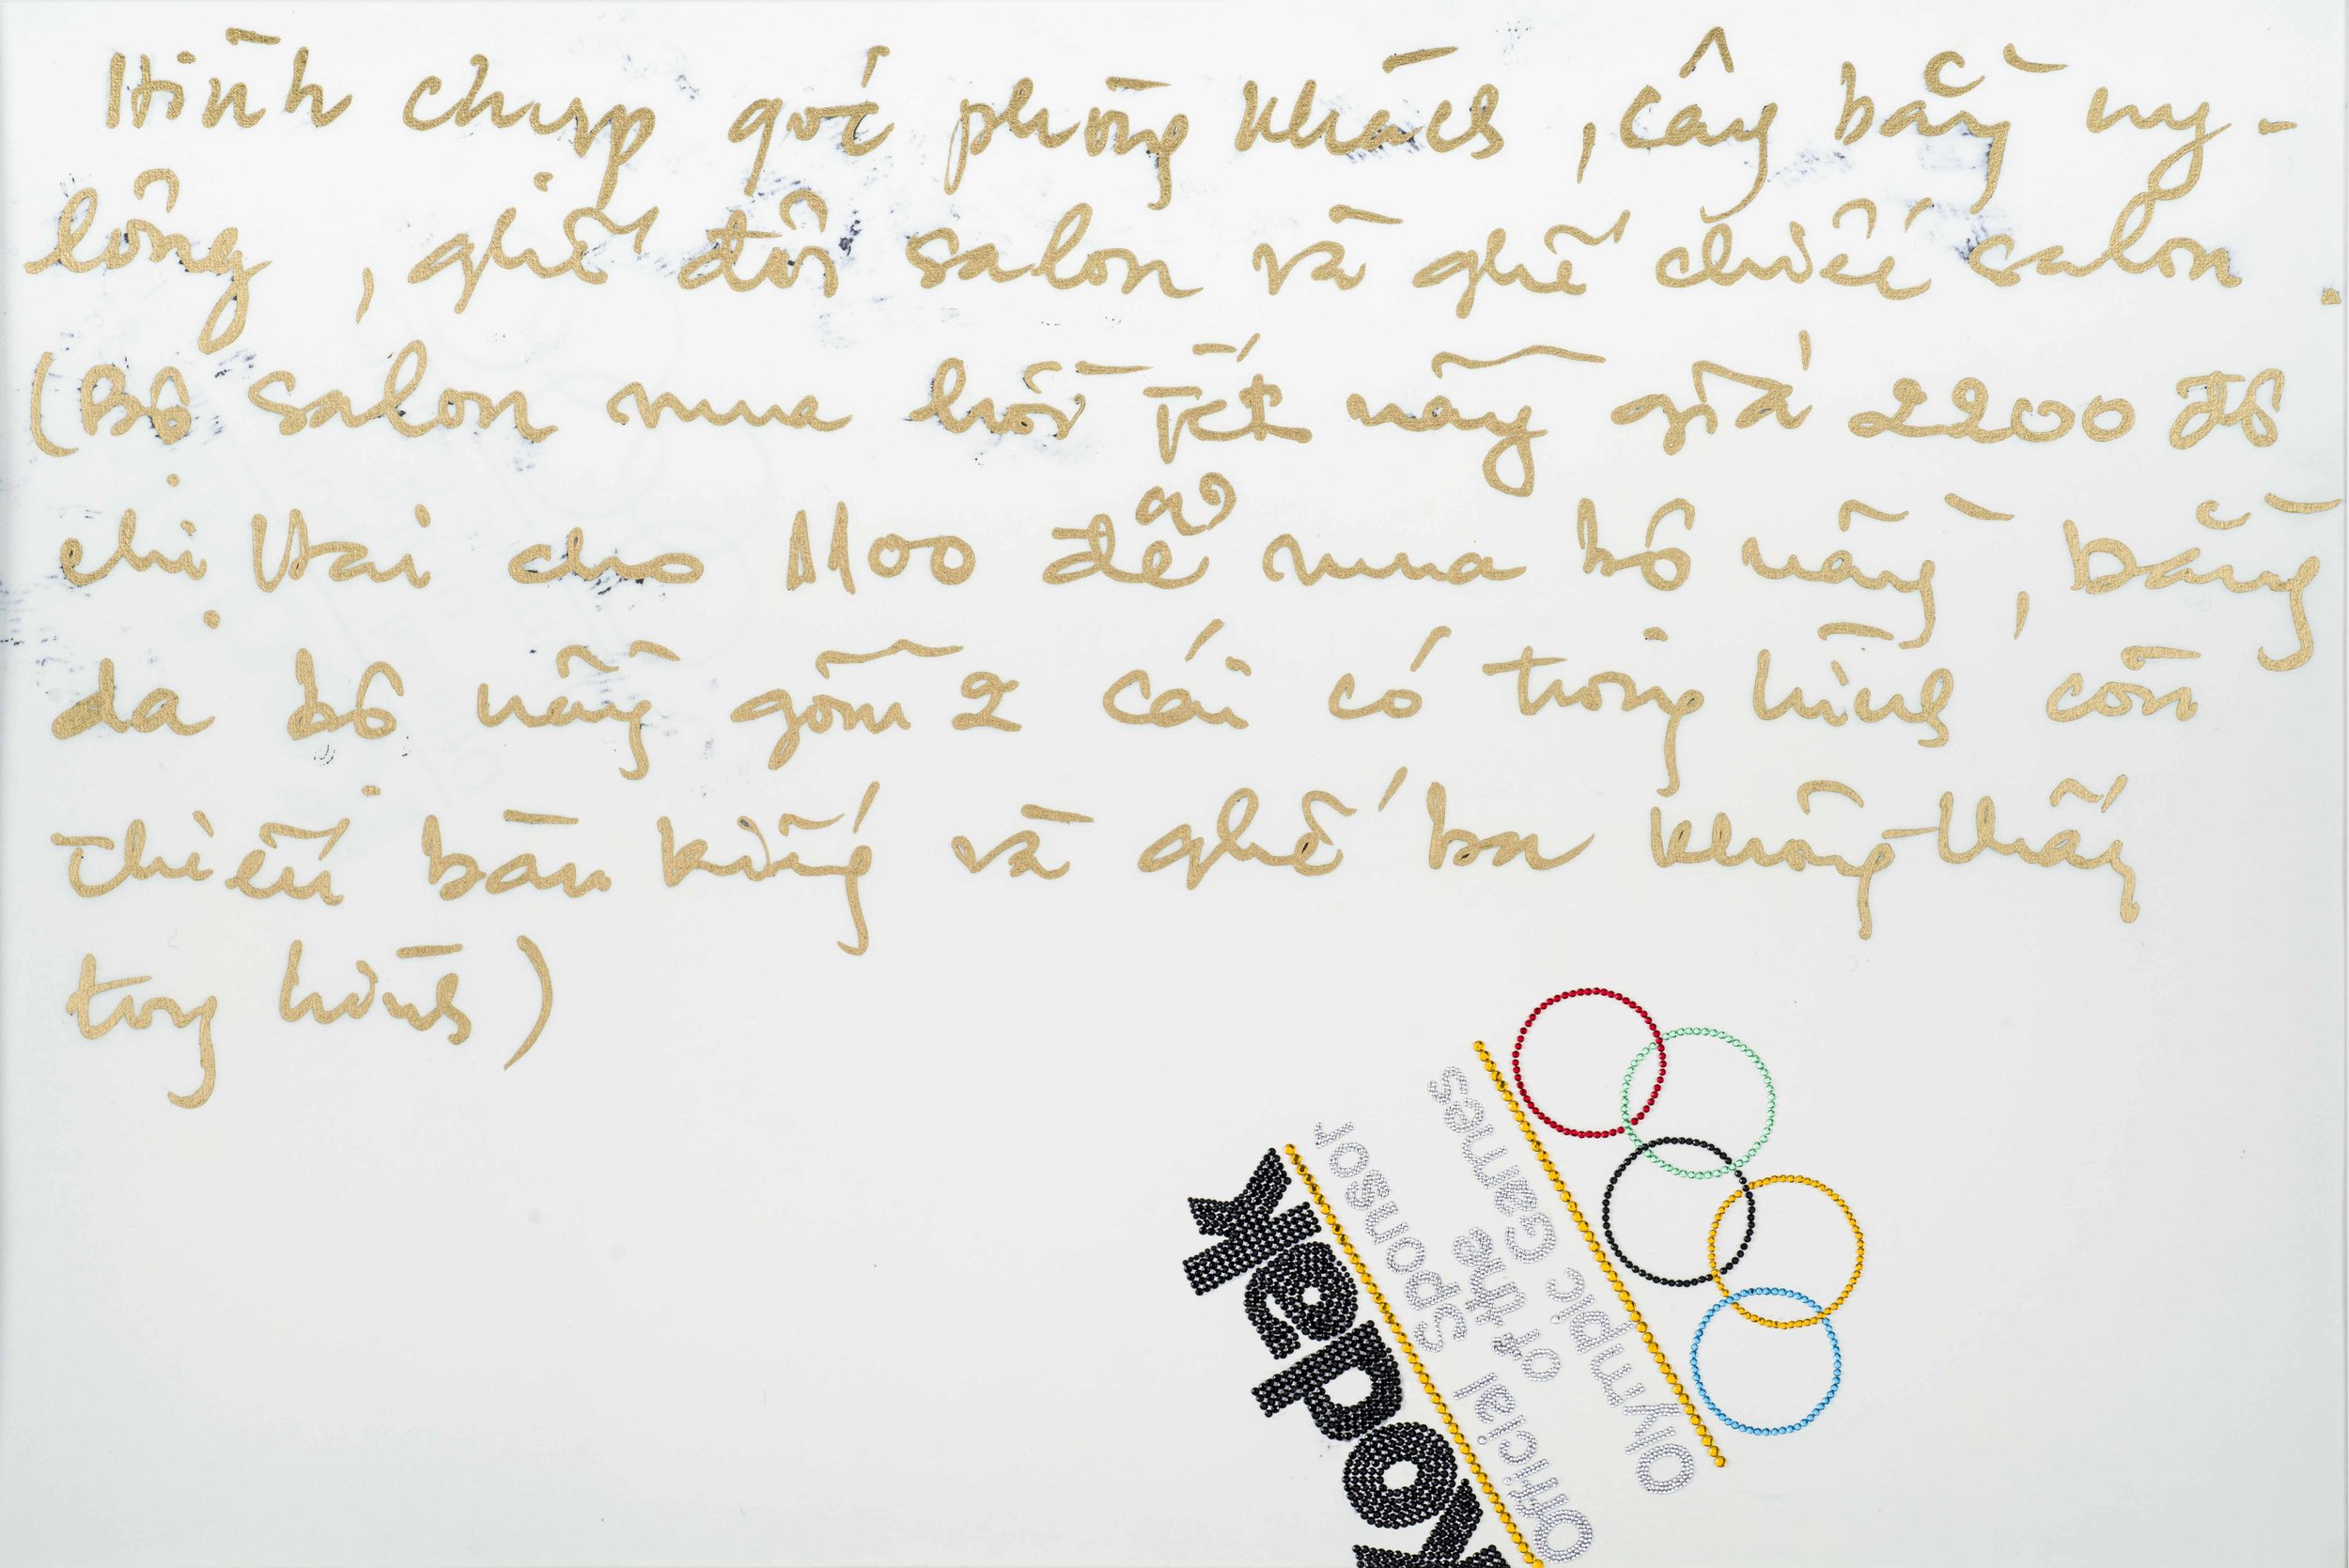 Hình chụp góc phòng khách, cây bằng ny-
lông, ghế đôi salon và ghế chiếc salon.
(Bộ salon mua hồi Tết nầy giá 2200 đô
chị Hai cho 1100 để mua bộ nầy, bằng
da bộ nầy gồm 2 cái có trong hình còn
thiếu bàn kiếng và ghế ba không thấy
trong hình)
Kodak
Official Sponsor
of the
Olympic Games